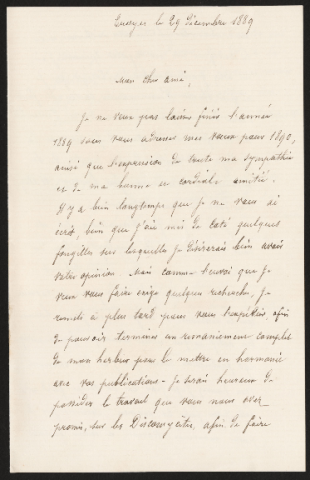 le 29 Décembre 1889
Mon cher ami,
Je ne veux pas laisser finir l'année
1889 sans vous adresser mes vœux pour 1890,
ainsi que l'expression de toute ma sympathie
et de ma bonne et cordiale amitié.
Il y a bien longtemps que je ne vous ai
écrit, bien que j'aie mis de côté quelques
fongilles sur lesquelles je désirerais bien avoir
votre opinion. Mais comme l'envoi que je
veux vous faire exige quelques recherches, je
remets à plus tard pour vous l'expédier, afin
de pouvoir terminer un remaniement complet
de mon herbier pour le mettre en harmonie
avec vos publications - Je serai heureux de
posséder le travail que vous nous avez
promis, sur les Discomycètes, afin de faire